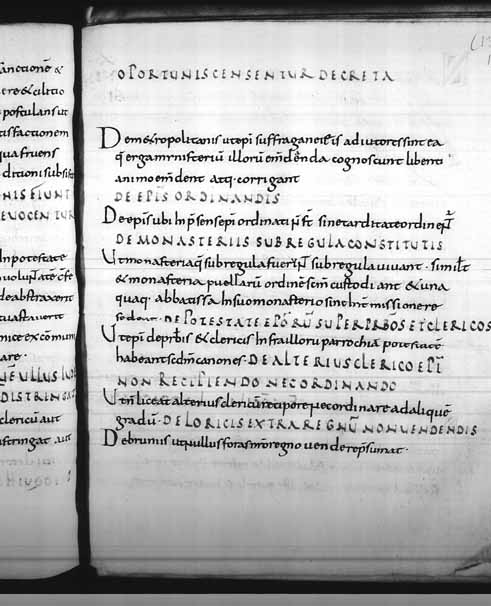 anctione &
ere & ultio
postulansut
tisfactionem
quafruens
ditioni subsi
NIS EIUNT
EVOCENTUR
Inpotestate
deabstraxerit
are
NE ULLUS IUD
DISTRINGAT
clericū aut
stringat aut
OPORTUNIS CENSENTUR DECRETA
Dem&ropolitanis ut epī suffraganei eis adiutores sint ea
q̄ erga ministeriū illorū em̄denda cognoscunt libenti
animo em̄dent atq· corrigant
DE EPĪS ORDINANDIS
De epīs ubi in p̄sens epī ordinati n̄ s̄t sine tarditate ordinent̄
DE MONASTERIIS SUB REGULA CONSTITUTIS
Ut monasteria q̄ subregula fuer̄ subregula uiuant · simil̄
& monasteria puellarū ordinē sc̄m custodiant & una
quaq· abbatissa in suo monasterio sine intermissione re
sedeat· DE POTESTATE EPŌRŪ SUPER PRB̄OS ET CLERICOS
Ut epī de prb̄is & clericis infra illorū parrochia potestatē
habeant scd̄m canones· DE ALTERIUS CLERICO EPĪ
NON RECIPIENDO NEC ORDINANDO
Ut n̄ liceat alterius clericū recipere nec ordinare ad aliquē
gradū· DE LORICIS EXTRA REGNŪ NON VENDENDIS
De brunis ut nullus foras n̄ro regno uendere p̄sumat·